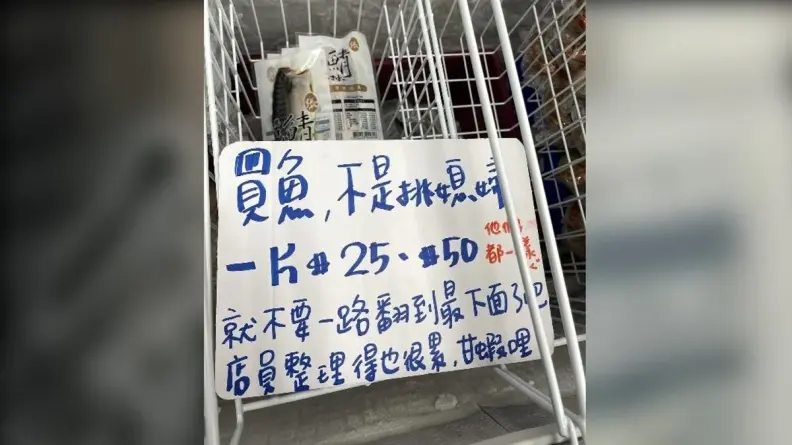 鯖
鯖
買魚,不是挑媳婦
一片$25.$50
他們
都一樣
就不要一路翻到最下面了吧
店員整理得也很累,甘蝦哩